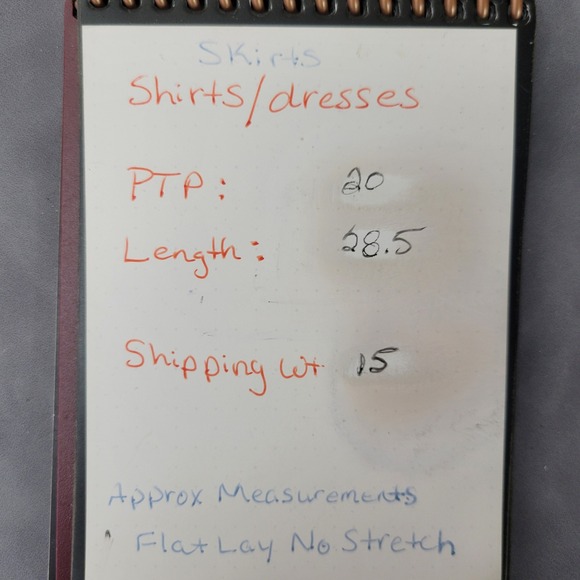 Skirts
Shirts/dresses
PTP: 20
Length: 28.5
Shipping Wt 15
Approx Measurements
Flat Lay No Stretch